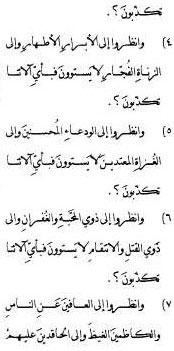 تكذّبونَ ؟ .
٤) وانظروا إلى الأبرارِ الأطهارِ وإلى
الزناةِ الفُجّارِ لا يَستوونَ فبأيِّ آلائنا
تكذّبونَ ؟ .
٥) وانظروا إلى الودعاءِ المُحسنينَ وإلى
الغُزاةِ المعتدينَ لا يستوونَ فبأيِّ آلائنا
تكذّبونَ ؟ .
٦) وانظروا إلى ذوي المحبَّةِ والغُفرانِ وإلى
ذوي القتلِ والانتقامِ لا يستوونَ فبأيِّ آلائنا
تكذّبونَ ؟ .
٧) وانظروا إلى العافينَ عَنِ الناسِ
والكاظمينَ الغيظَ وإلى الحاقدينَ عليهمْ